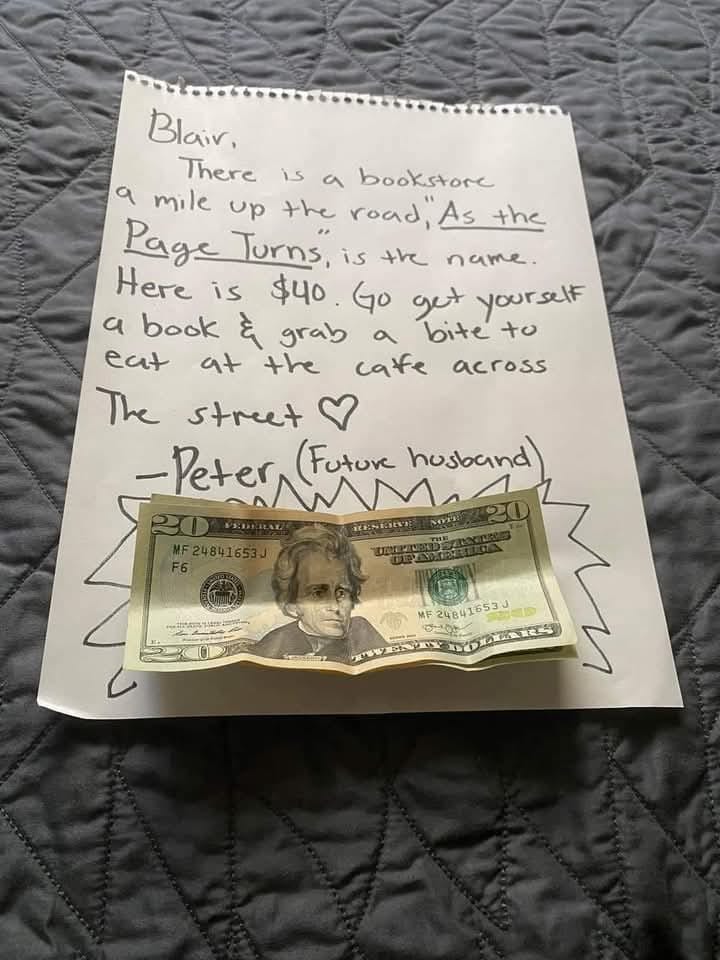 Blair,
There is a bookstore
a mile up the road, "As the
Page Turns", is the name.
Here is $40. Go get yourself
a book & grab a bite to
eat at the cafe across
The street ♡
-Peter (Future husband)
20 FEDERAL RESERVE NOTE 20
THE
UNITED STATES
OF AMERICA
MF 24841653 J
F6
MF 24841653 J
20 TWENTY DOLLARS